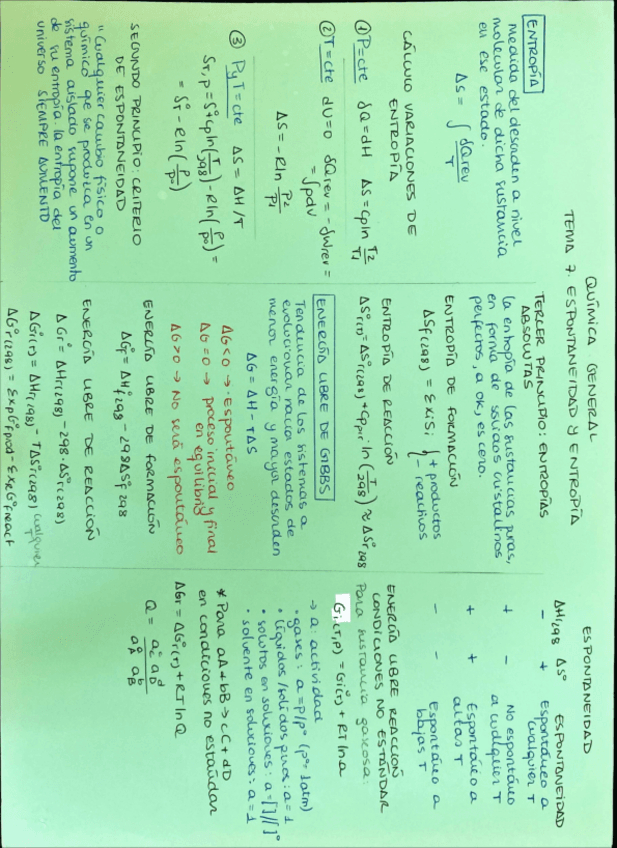 QUÍMICA GENERAL
TEMA 7. ESPONTANEIDAD Y ENTROPÍA
ENTROPÍA
medida del desorden a nivel
molecular de dicha sustancia
en ese estado.
ΔS = ∫ δQrev / T
CÁLCULO VARIACIONES DE
ENTROPÍA
① P=cte δQ=dH ΔS=cp ln T2/T1
② T=cte dU=0 δQrev=-δWrev=
=∫pdv
ΔS=-Rln P2/P1
③ P y T=cte ΔS=ΔH/T
Sr,p=S°+cpln(T/298)-Rln(P/P°)=
=S°T-Rln(P/P°)
SEGUNDO PRINCIPIO: CRITERIO
DE ESPONTANEIDAD
"Cualquier cambio físico o
químico que se produzca en un
sistema aislado supone un aumento
de su entropía la entropía del
universo SIEMPRE AUMENTO
TERCER PRINCIPIO: ENTROPÍAS
ABSOLUTAS
la entropía de las sustancias puras,
en forma de sólidos cristalinos
perfectos, a 0K, es cero.
ENTROPÍA DE FORMACIÓN
ΔSf(298) = ΣxiSi { + productos
- reactivos
ENTROPÍA DE REACCIÓN
ΔS°r(T)=ΔS°r(298)+Cp,r·ln(T/298)≈ΔS°r298
ENERGÍA LIBRE DE GIBBS
Tendencia de los sistemas a
evolucionar hacia estados de
menor energía y mayor desorden
ΔG = ΔH - TΔS
ΔG<0 → espontáneo
ΔG=0 → proceso inicial y final
en equilibrio
ΔG>0 → No será espontáneo
ENERGÍA LIBRE DE FORMACIÓN
ΔG°f=ΔH°f298-298ΔS°f298
ENERGÍA LIBRE DE REACCIÓN
ΔG°r=ΔHr(298)-298·ΔS°r(298)
ΔG°r(T)=ΔHr(298)-TΔS°r(298) cualquier T
ΔG°r(298)=ΣxpG°fprod-ΣxrG°freact
ESPONTANEIDAD
ΔHr298 ΔS° ESPONTANEIDAD
- + Espontáneo a
cualquier T
+ - No espontáneo
a cualquier T
+ + Espontáneo a
altas T
- - Espontáneo a
bajas T
ENERGÍA LIBRE REACCIÓN
CONDICIONES NO ESTÁNDAR
Para sustancia gaseosa:
Gi(T,P) = G°i(T) + RTlna
→ a: actividad
• gases: a=P/P° (P°=1atm)
• líquidos/sólidos puros: a=1
• solutos en soluciones: a=[]/[]°
• solvente en soluciones: a=1
* Para aA+bB→cC+dD
en condiciones no estándar
ΔGr=ΔG°r(T)+RTlnQ
Q = a^c_C a^d_D / a^a_A a^b_B